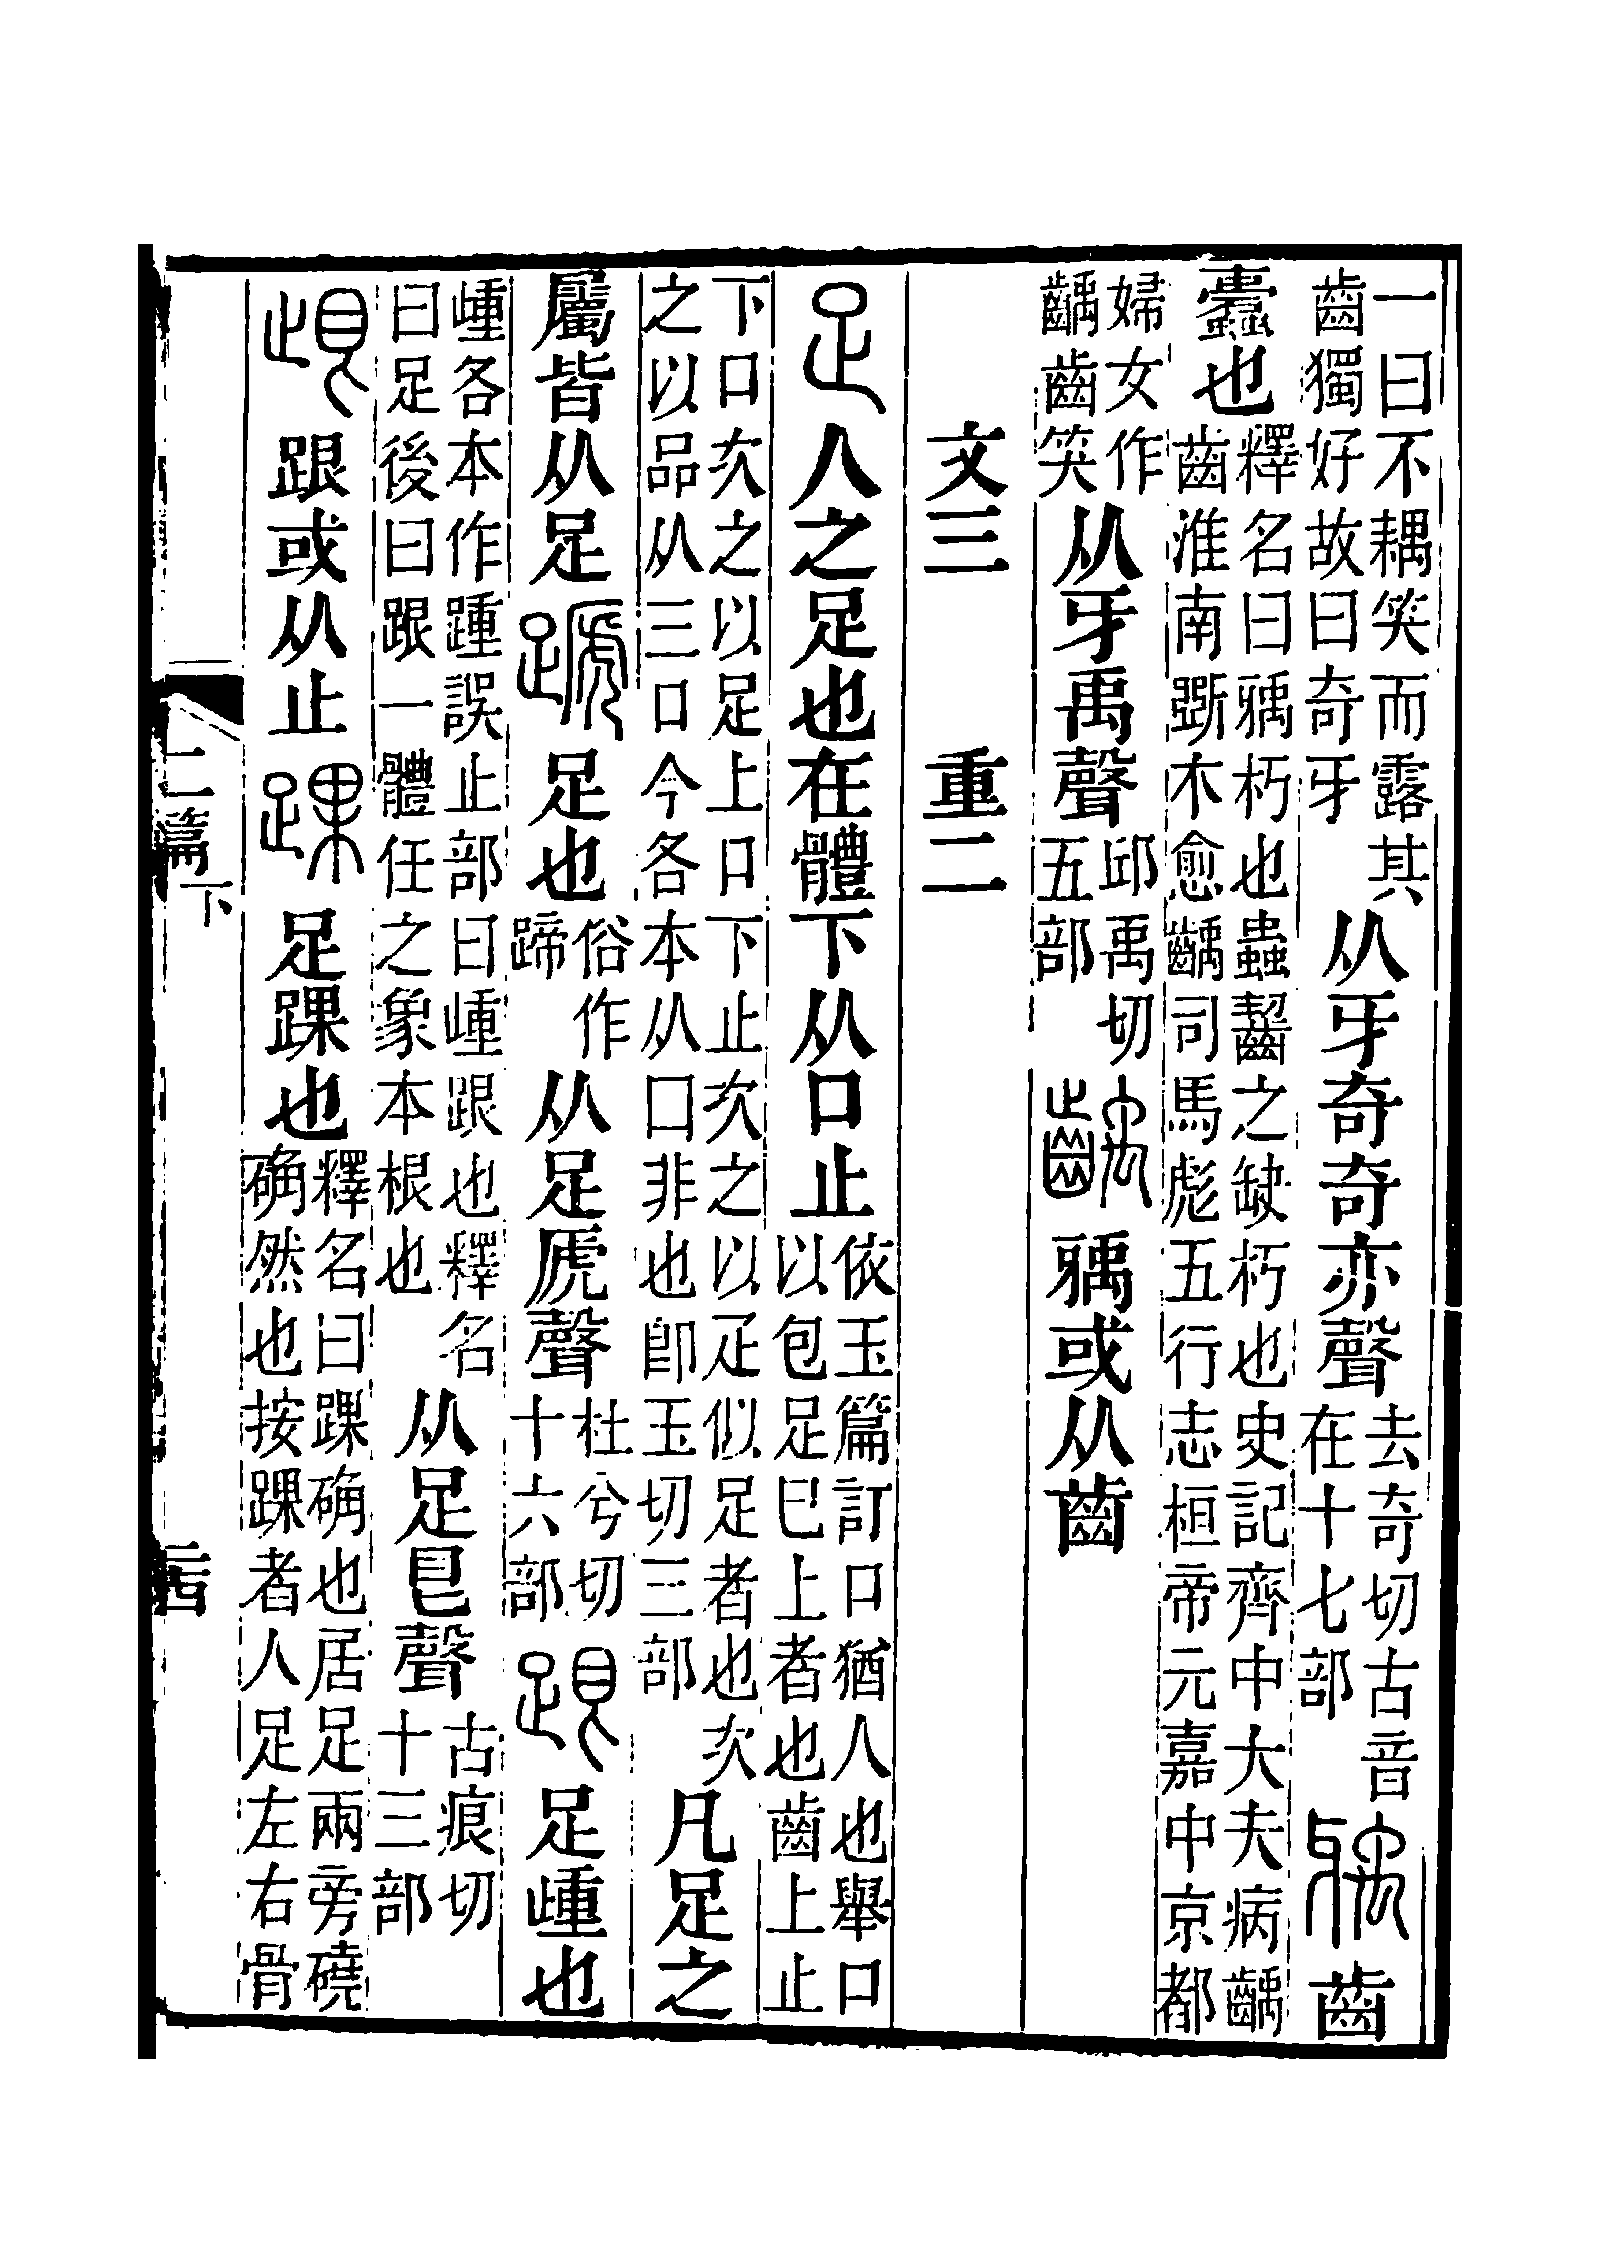 一曰不耦笑而露其齒獨好故曰奇牙从牙奇奇亦聲去奇切古音在十七部𤘐齒
蠹也釋名曰𤘐朽也蟲齧之缺朽也史記齊中大夫病齲齒淮南斲木愈齲司馬彪五行志桓帝元嘉中京都
婦女作齲齒笑从牙禹聲邱禹切五部齲𤘐或从齒
文三 重二
足人之足也在體下从口止依玉篇訂口猶人也舉口以包足已上者也齒上止
下口次之以足上口下止次之以疋似足者也次之以品从三口今各本从囗非也卽玉切三部凡足之
屬皆从足蹏足也俗作蹄从足虒聲杜兮切十六部跟足歱也
歱各本作踵誤止部曰歱跟也釋名曰足後曰跟一體任之象本根也从足㫐聲古痕切十三部
𣥦跟或从止踝足踝也釋名曰踝确也居足兩旁磽确然也按踝者人足左右骨
二篇下 二十四